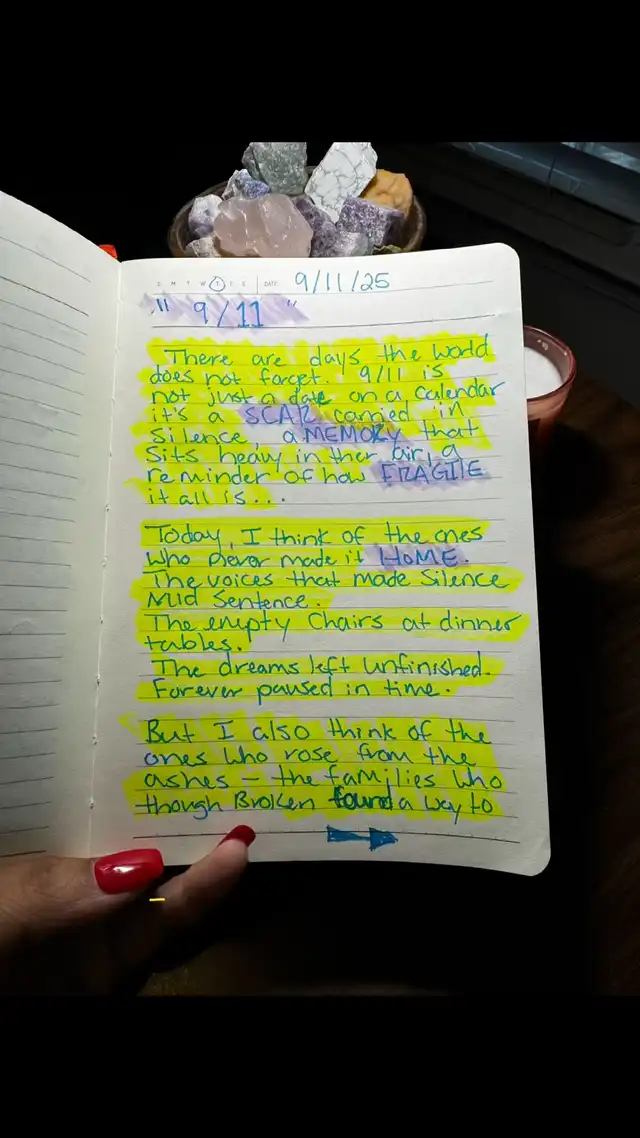 S M T W T F S DATE 9/11/25
" 9/11 "
There are days the world
does not forget. 9/11 is
not just a date on a calendar
it's a SCAR carried in
silence, a MEMORY that
Sits heavy in ther air, a
reminder of how FRAGILE
it all is...
Today, I think of the ones
who never made it HOME.
The voices that made Silence
Mid Sentence.
The empty Chairs at dinner
tables.
The dreams left unfinished.
Forever paused in time.
But I also think of the
ones who rose from the
ashes — the families who
though Broken found a way to